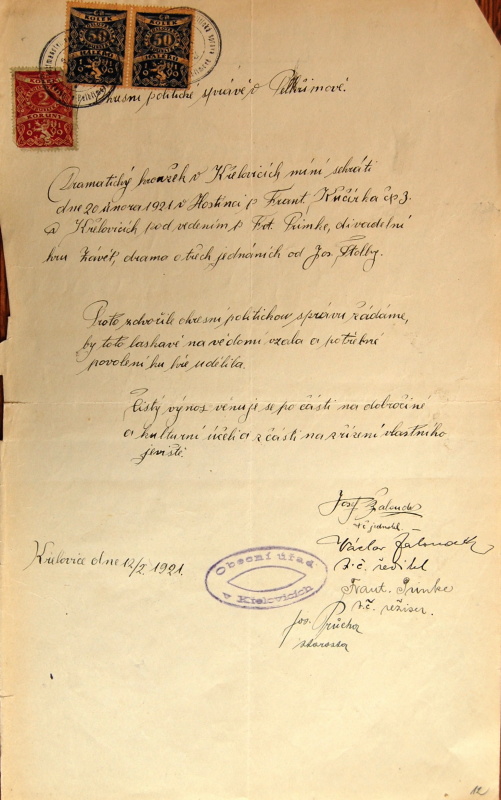 ČS
KOLEK
50
HALÉŘŮ
ČS
KOLEK
50
HALÉŘŮ
KOLEK
2
KORUNY
Okresní politické správě v Pelhřimově.
Dramatický kroužek v Křelovicích míní sehráti
dne 20 února 1921 v Hostinci p Frant. Kučírka čp 3.
v Křelovicích pod vedením p Frt. Punke, divadelní
hru Závěť, drama o třech jednáních od Jos. Štolby.
Proto zdvořile okresní politickou správu žádáme,
by toto laskavě na vědomí vzala a potřebné
povolení ku hře udělila.
Čistý výnos věnuje se po části na dobročiné
a kulturní účeli a z části na zřízení vlastního
jeviště.
Josef
t č jednatel
Václav
t. č. ředitel
Křelovice dne 12/2 1921
Obecní úřad
v Křelovicích
Frant. Punke
t. č. režiser.
Jos. Průcha
starosta
12